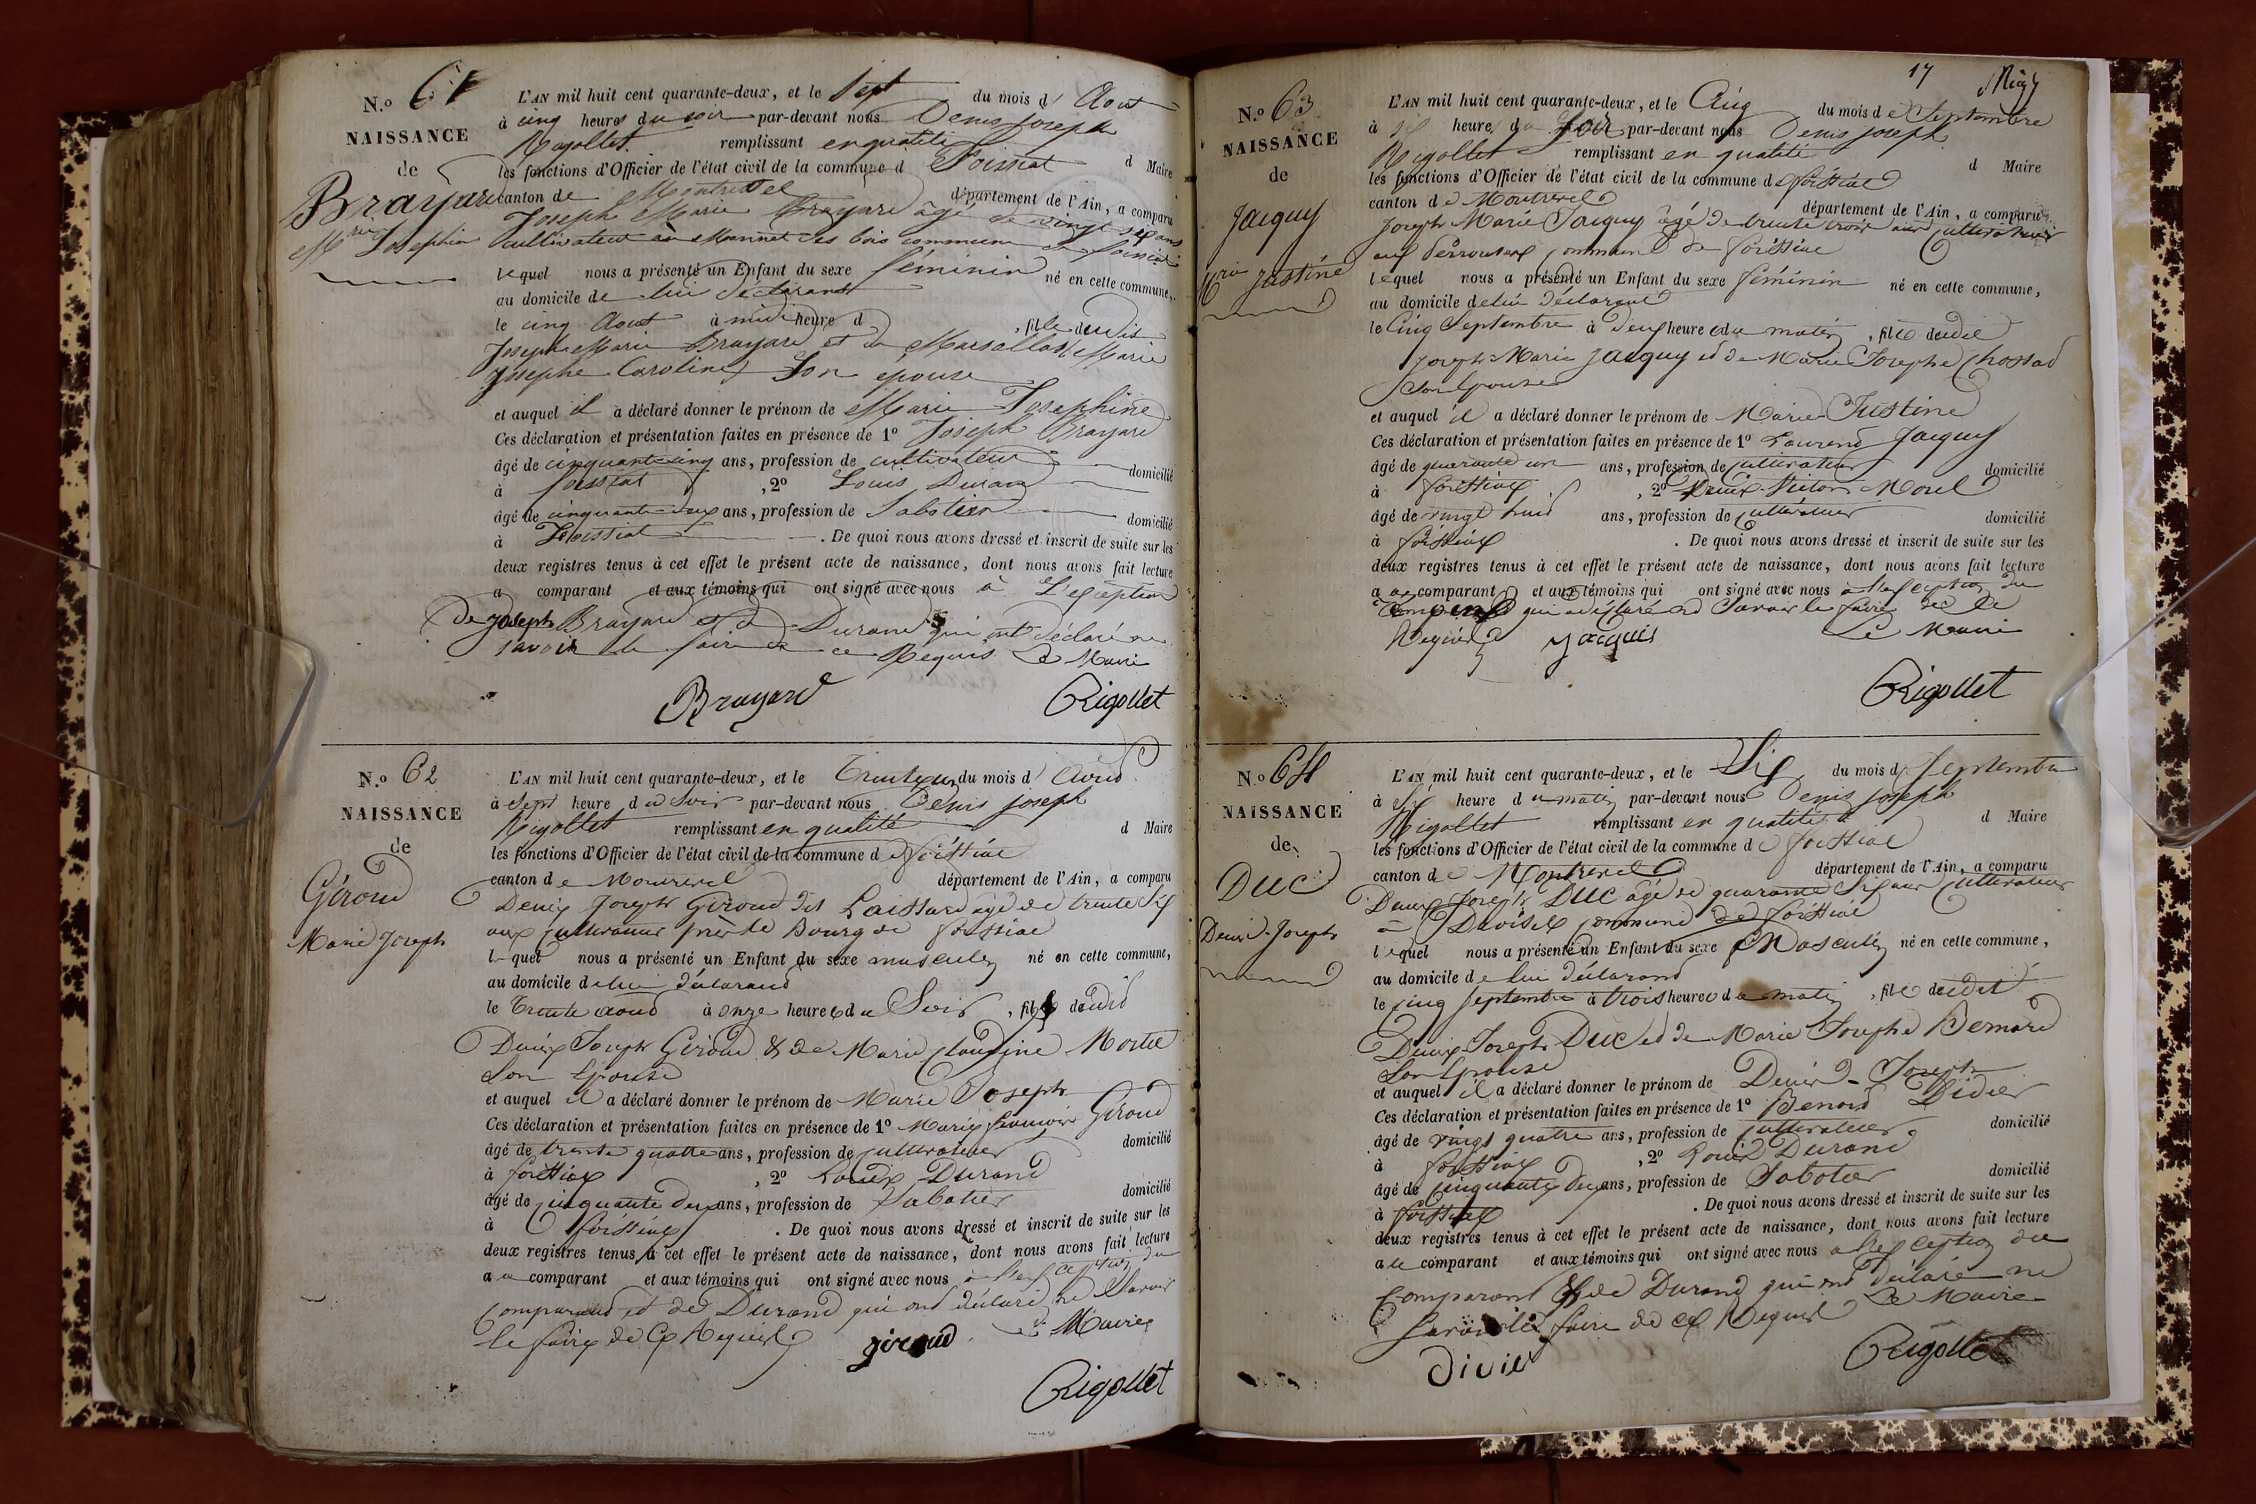 N.o 61
NAISSANCE
de
Brayard
M.rie Josephine
L'AN mil huit cent quarante-deux, et le Sept du mois d' Aout
à cinq heures du soir par-devant nous Denis Joseph
Rigollet remplissant en qualité d Maire
les fonctions d'Officier de l'état civil de la commune d Foissiat
canton de Montrevel département de l'Ain, a comparu
Joseph Marie Brayard âgé de vingt six ans
cultivateur au des bois commune de foissiat
lequel nous a présenté un Enfant du sexe féminin né en cette commune,
au domicile de lui déclarant
le cinq Aout à midi heure d , fille dudit
Joseph Marie Brayard et de Marie
Josephe Caroline Son epouse
et auquel il a déclaré donner le prénom de Marie Josephine
Ces déclaration et présentation faites en présence de 1o Joseph Brayard
âgé de cinquante cinq ans, profession de cultivateur domicilié
à foissiat , 2o Louis Durand
âgé de cinquante deux ans, profession de Sabotier domicilié
à Foissiat . De quoi nous avons dressé et inscrit de suite sur les
deux registres tenus à cet effet le présent acte de naissance, dont nous avons fait lecture
a comparant et aux témoins qui ont signé avec nous à L'exception
de Joseph Brayard et d Durand qui ont déclaré ne
savoir le faire de ce Requis Le Maire
Brayard Rigollet
N.o 62
NAISSANCE
de
Giroud
Marie Joseph
L'AN mil huit cent quarante-deux, et le Trente un du mois d' Aoud
à Sept heure du Soir par-devant nous Denis Joseph
Rigollet remplissant en qualité d Maire
les fonctions d'Officier de l'état civil de la commune de foissiat
canton de Montrevel département de l'Ain, a comparu
Denis Joseph Giroud dit âgé de trente Six
ans cultivateur près le Bourg de foissiat
lequel nous a présenté un Enfant du sexe masculin né en cette commune,
au domicile de lui déclarand
le Trente aoud à onze heure du Soir , fils dudid
Denis Joseph Giroud & de Marie Claudine
Son Epouse
et auquel il a déclaré donner le prénom de Marie Joseph
Ces déclaration et présentation faites en présence de 1o Giroud
âgé de trente quatre ans, profession de cultivateur domicilié
à foissiat , 2o Louis Durand
âgé de cinquante deux ans, profession de Sabotier domicilié
à foissiat . De quoi nous avons dressé et inscrit de suite sur les
deux registres tenus à cet effet le présent acte de naissance, dont nous avons fait lecture
au comparant et aux témoins qui ont signé avec nous à l'exception du
comparand et de Durand qui ond déclaré ne Savoir
le faire de ce Requis Le Maire
giroud
Rigollet
17
N.o 63
NAISSANCE
de
Jacquy
M.rie Justine
L'AN mil huit cent quarante-deux, et le Cinq du mois de Septembre
à six heure du Soir par-devant nous Denis Joseph
Rigollet remplissant en qualité d Maire
les fonctions d'Officier de l'état civil de la commune de foissiat
canton de Montrevel département de l'Ain, a comparu
Joseph Marie Jacquy âgé de trente trois ans Cultivateur
aux commune de foissiat
lequel nous a présenté un Enfant du sexe féminin né en cette commune,
au domicile de lui déclarand
le Cinq Septembre à Deux heure du matin , fille dudit
Joseph Marie Jacquy et de Marie Josephe Chossad
Son Epouse
et auquel il a déclaré donner le prénom de Marie Justine
Ces déclaration et présentation faites en présence de 1o Laurend Jacquy
âgé de quarante un ans, profession de cultivateur domicilié
à foissiat , 2o Denis Victor Morel
âgé de vingt huid ans, profession de cultivateur domicilié
à foissiat . De quoi nous avons dressé et inscrit de suite sur les
deux registres tenus à cet effet le présent acte de naissance, dont nous avons fait lecture
au comparant et aux témoins qui ont signé avec nous à l'exception du
qui a déclaré ne Savoir le faire de ce
Requis Jacquis Le Maire
Rigollet
N.o 64
NAISSANCE
de
DUC
Denis-Joseph
L'AN mil huit cent quarante-deux, et le Six du mois de Septembre
à Six heure du matin par-devant nous Denis Joseph
Rigollet remplissant en qualité d Maire
les fonctions d'Officier de l'état civil de la commune de foissiat
canton de Montrevel département de l'Ain, a comparu
Denis Joseph DUC âgé de quarante Six ans Cultivateur
à commune de foissiat
lequel nous a présenté un Enfant du sexe Masculin né en cette commune,
au domicile de lui déclarand
le cinq Septembre à trois heure du matin , fils dudit
Denis Joseph DUC et de Marie Josephe Bernard
Son Epouse
et auquel il a déclaré donner le prénom de Denis-Joseph
Ces déclaration et présentation faites en présence de 1o Benoid Didier
âgé de vingt quatre ans, profession de cultivateur domicilié
à foissiat , 2o Louis Durand
âgé de cinquante deux ans, profession de Sabotier domicilié
à foissiat . De quoi nous avons dressé et inscrit de suite sur les
deux registres tenus à cet effet le présent acte de naissance, dont nous avons fait lecture
au comparant et aux témoins qui ont signé avec nous à l'exception du
comparant & de Durand qui ond déclaré ne
Savoir le faire de ce Requis Le Maire
Rigollet